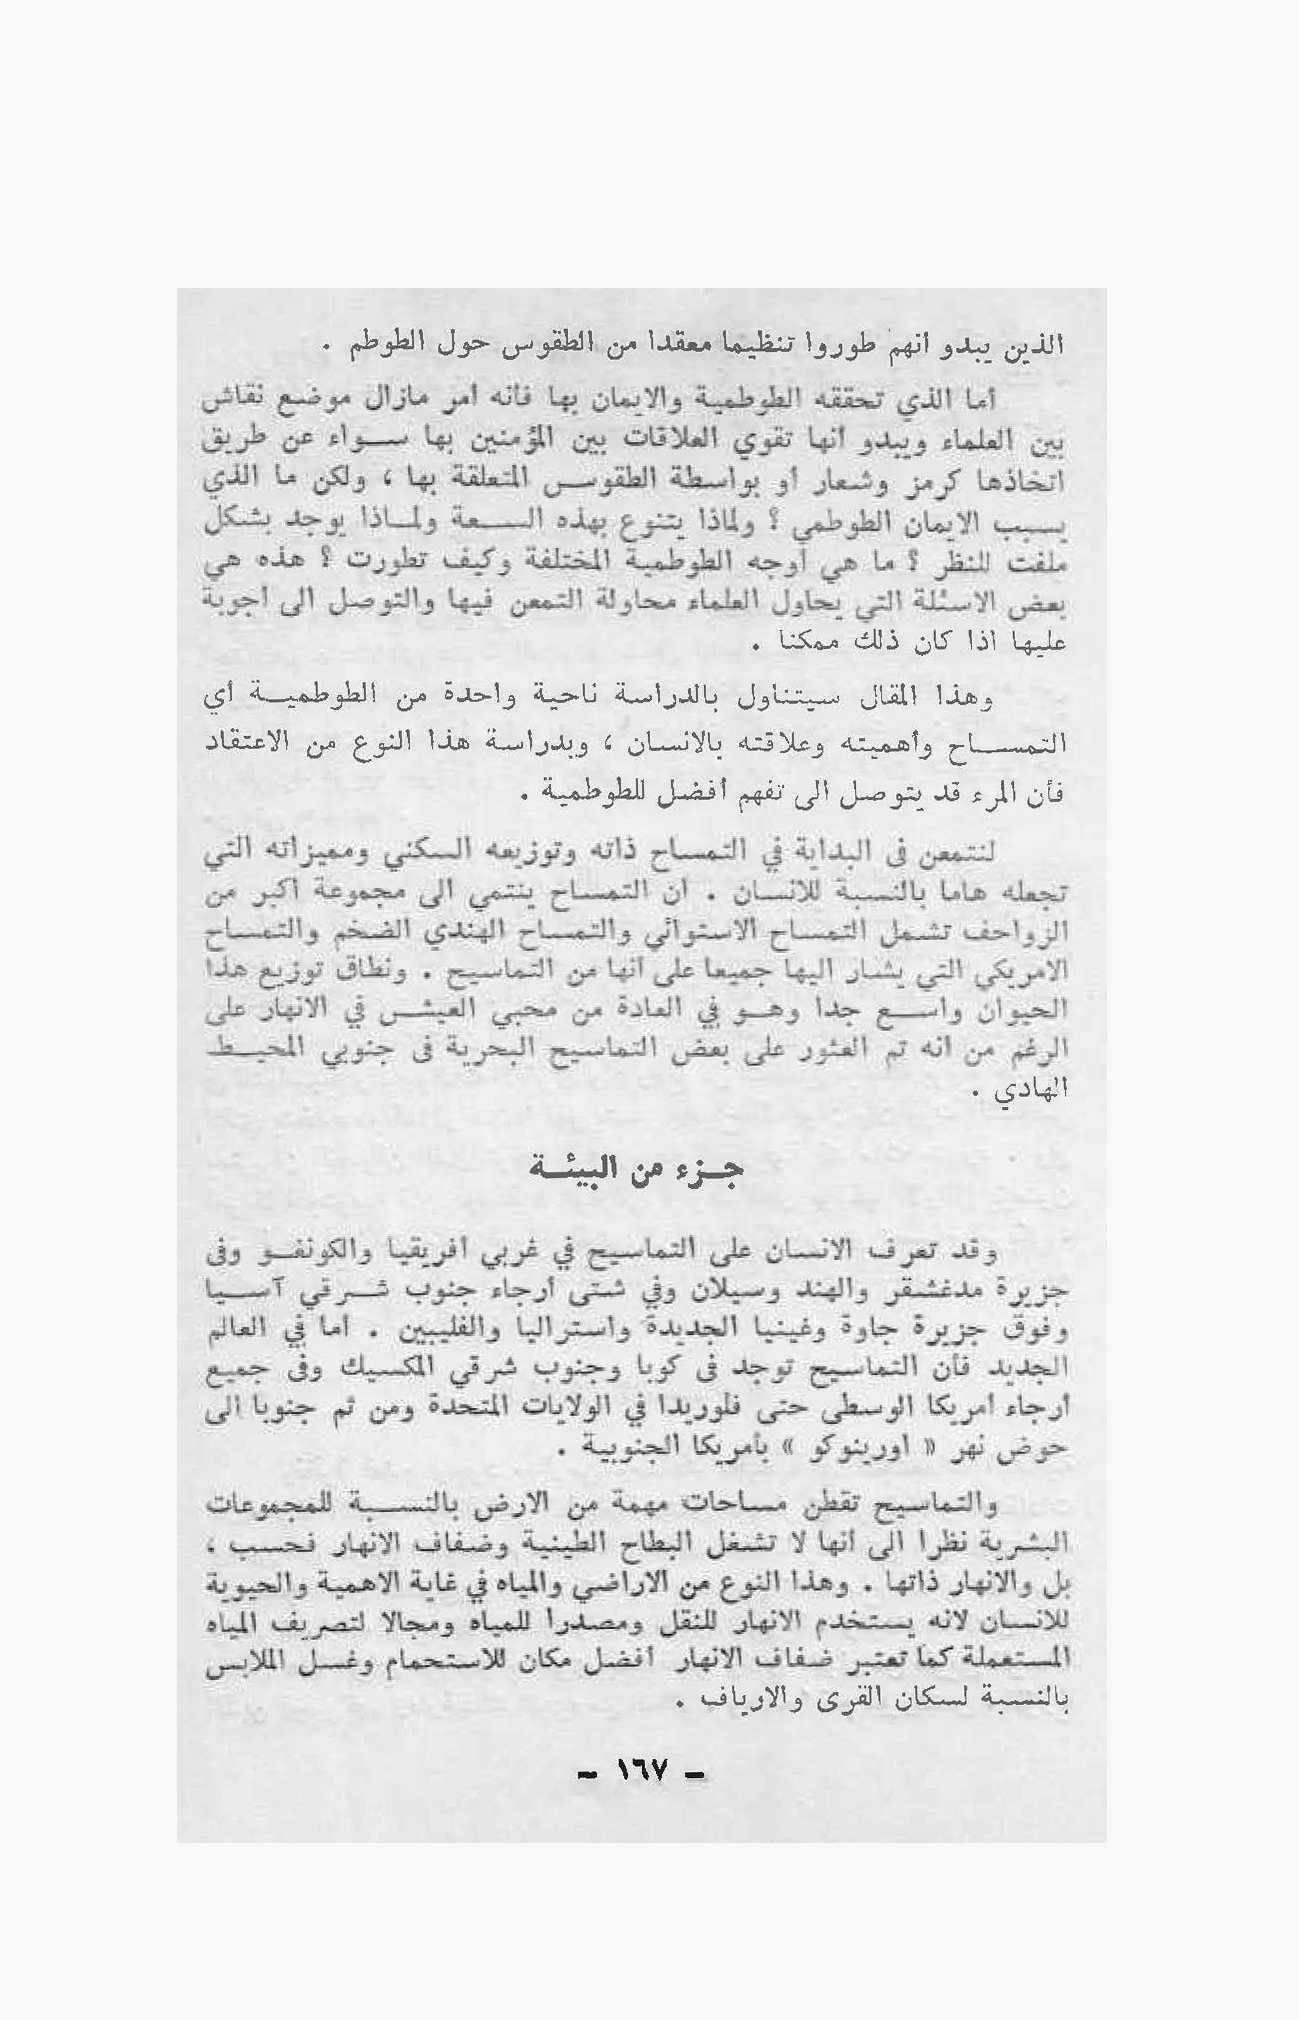 الذين يبدو انهم طوروا تنظيما معقدا من الطقوس حول الطوطم .
أما الذي تحققه الطوطمية والايمان بها فأنه أمر مازال موضع نقاش
بين العلماء ويبدو أنها تقوي العلاقات بين المؤمنين بها سواء عن طريق
اتخاذها كرمز وشعار أو بواسطة الطقوس المتعلقة بها ، ولكن ما الذي
يسبب الايمان الطوطمي ؟ ولماذا يتنوع بهذه السعة ولماذا يوجد بشكل
ملفت للنظر ؟ ما هي أوجه الطوطمية المختلفة وكيف تطورت ؟ هذه هي
بعض الاسئلة التي يحاول العلماء محاولة التمعن فيها والتوصل الى أجوبة
عليها اذا كان ذلك ممكنا .
وهذا المقال سيتناول بالدراسة ناحية واحدة من الطوطمية أي
التمساح وأهميته وعلاقته بالانسان ، وبدراسة هذا النوع من الاعتقاد
فأن المرء قد يتوصل الى تفهم أفضل للطوطمية .
لنتمعن فى البداية في التمساح ذاته وتوزيعه السكني ومميزاته التي
تجعله هاما بالنسبة للانسان . ان التمساح ينتمي الى مجموعة أكبر من
الزواحف تشمل التمساح الاستوائي والتمساح الهندي الضخم والتمساح
الامريكي التي يشار اليها جميعا على أنها من التماسيح . ونطاق توزيع هذا
الحيوان واسع جدا وهو في العادة من محبي العيش في الانهار على
الرغم من أنه تم العثور على بعض التماسيح البحرية فى جنوبي المحيط
الهادي .
جزء من البيئة
وقد تعرف الانسان على التماسيح في غربي أفريقيا والكونغو وفى
جزيرة مدغشقر والهند وسيلان وفي شتى أرجاء جنوب شرقي آسيا
وفوق جزيرة جاوة وغينيا الجديدة واستراليا والفليبين . أما في العالم
الجديد فأن التماسيح توجد فى كوبا وجنوب شرقي المكسيك وفى جميع
أرجاء أمريكا الوسطى حتى فلوريدا في الولايات المتحدة ومن ثم جنوبا الى
حوض نهر « اورينوكو » بأمريكا الجنوبية .
والتماسيح تقطن مساحات مهمة من الارض بالنسبة للمجموعات
البشرية نظرا الى أنها لا تشغل البطاح الطينية وضفاف الانهار فحسب ،
بل والانهار ذاتها . وهذا النوع من الاراضي والمياه في غاية الاهمية والحيوية
للانسان لانه يستخدم الانهار للنقل ومصدرا للمياه ومجالا لتصريف المياه
المستعملة كما تعتبر ضفاف الانهار أفضل مكان للاستحمام وغسل الملابس
بالنسبة لسكان القرى والارياف .
– ١٦٧ –